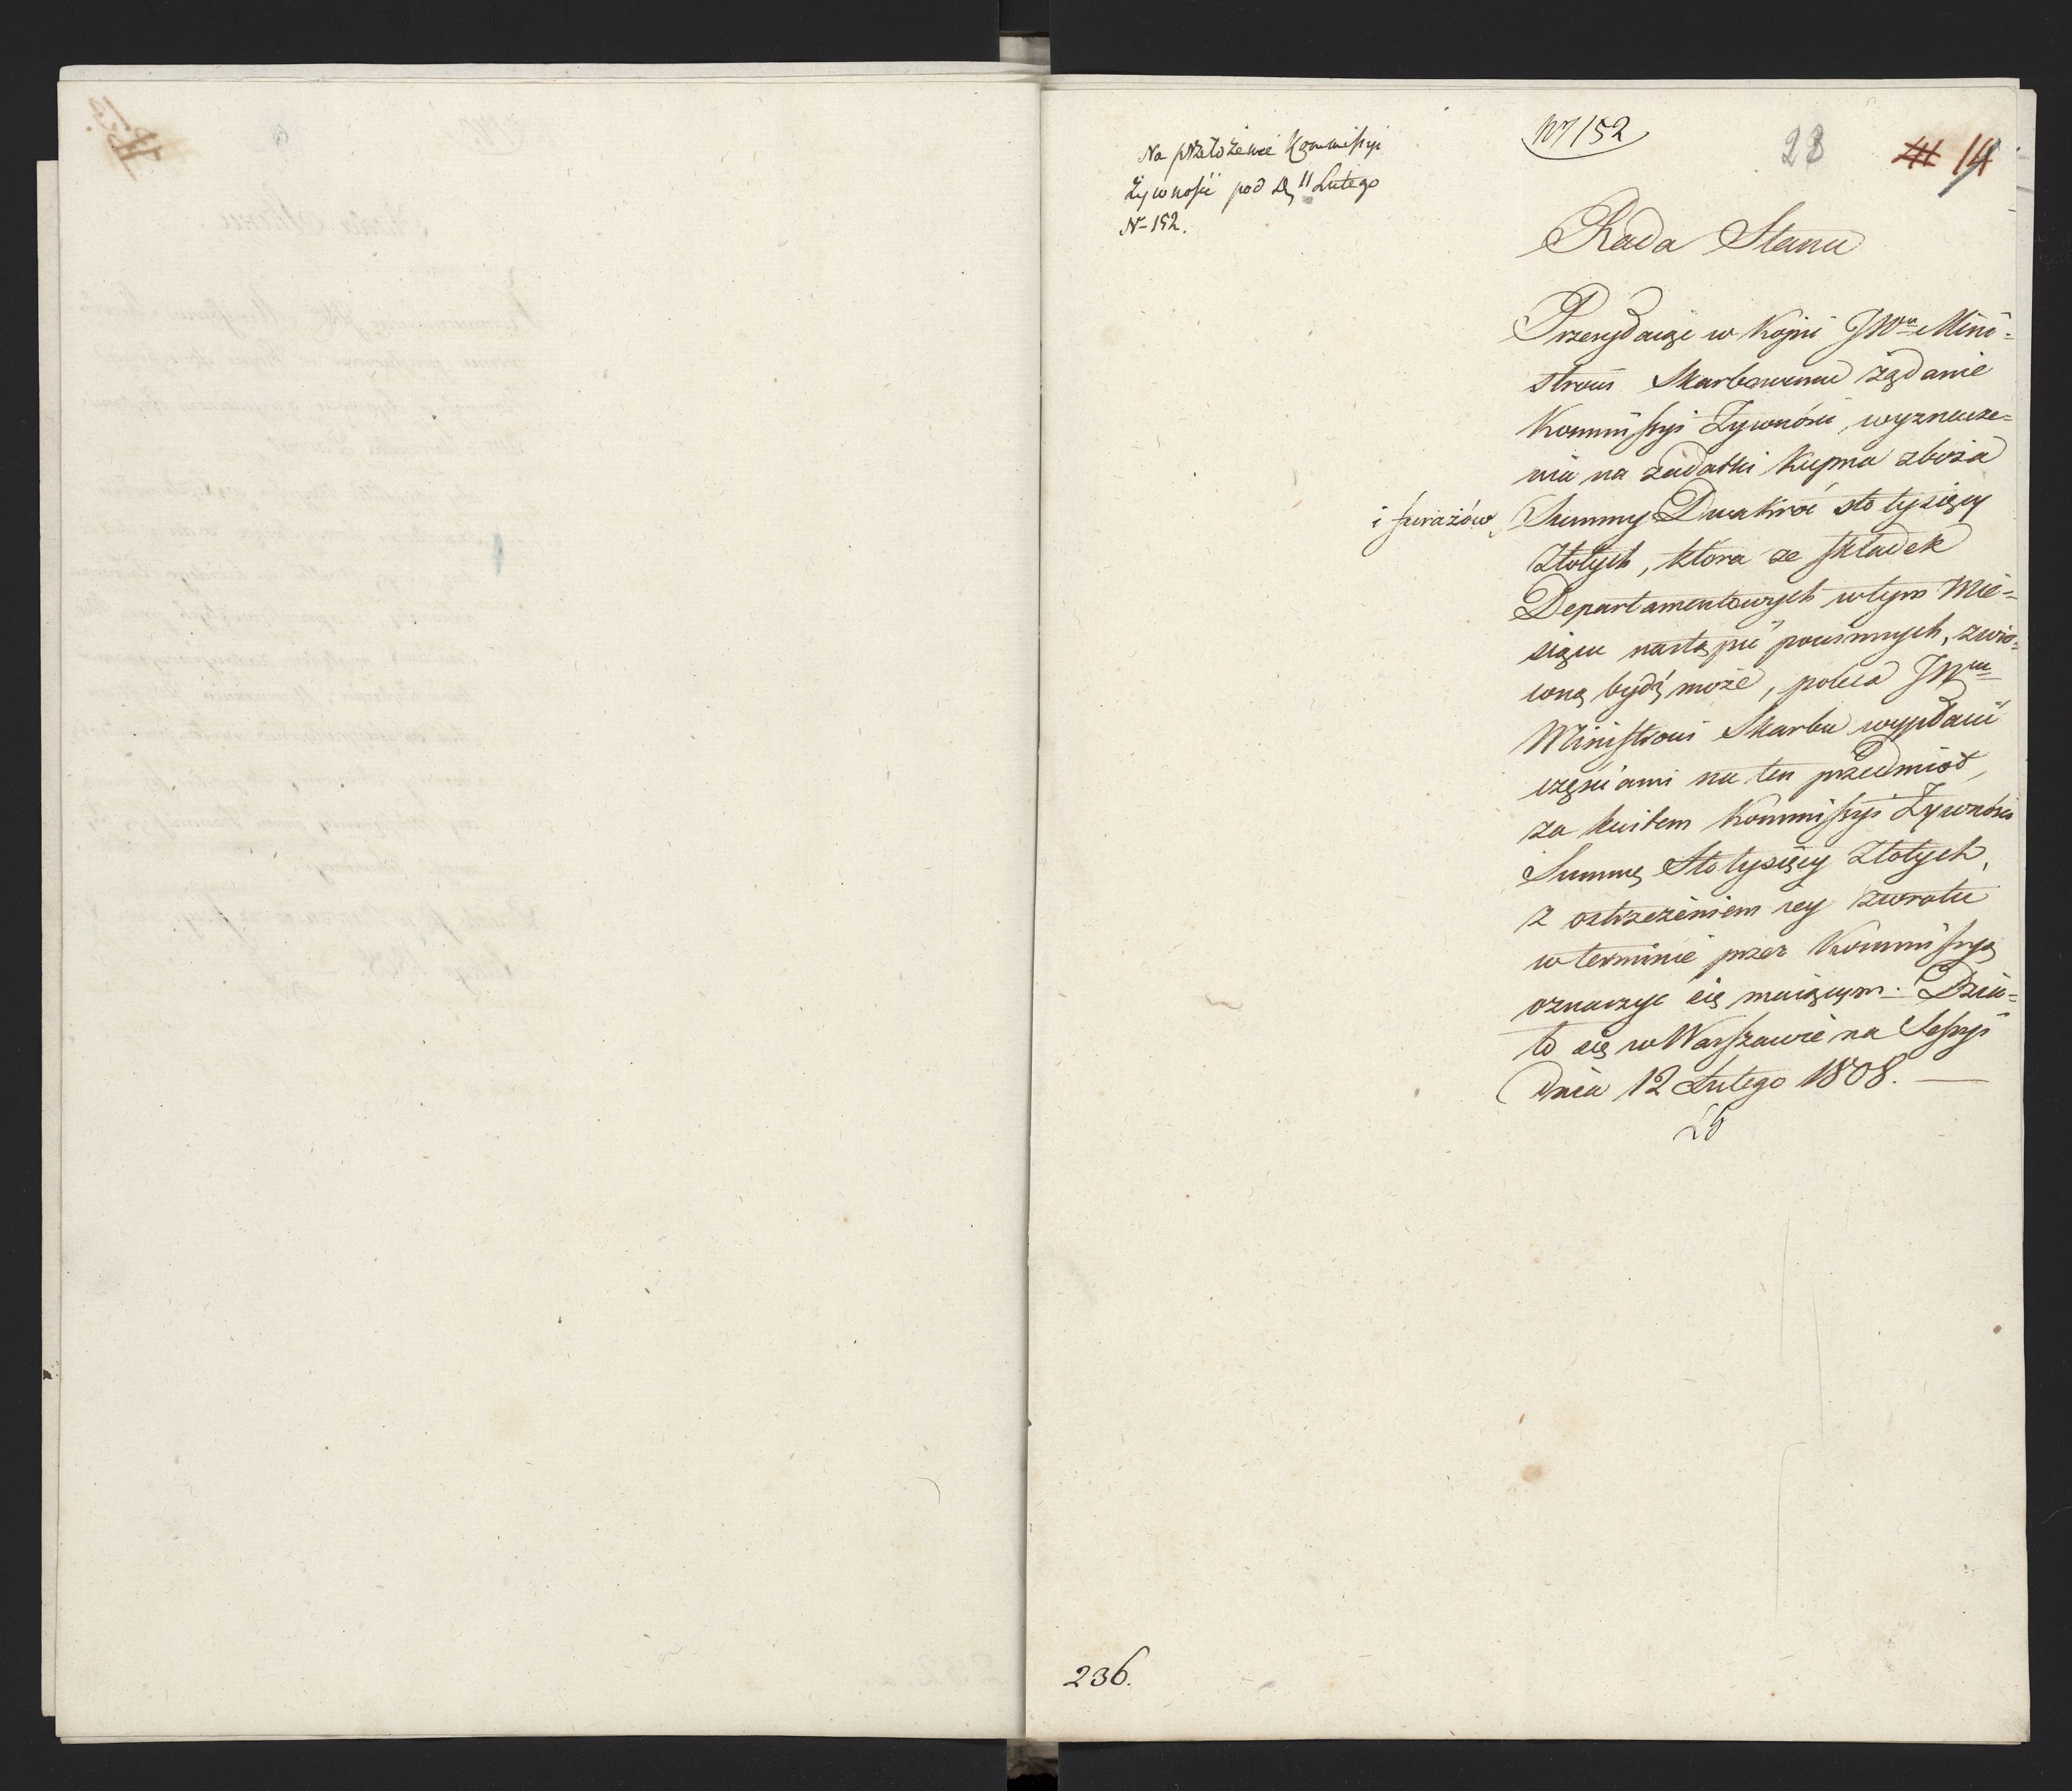 Na przełożenie Kommissyi
Żywności pod d. 11 Lutego
N 152.
N 152
23
14
Rada Stanu
Przesyłaiąc w Kopii JWu Mini-
strowi Skarbowemu żądanie
Kommissyi Żywności, wyznacze=
nia na zadatki kupna zboża
i furażów Summy Dwakroć sto tysięcy
Złotych, która ze składek
Departamentowych w tym Mie=
siącu nastąpić powinnych, zwró=
coną bydź może, poleca JWu
Ministrowi Skarbu wypłacić
częściami na ten przedmiot,
za kwitem Kommissyi Żywności
Summę Sto tysięcy Złotych,
z ostrzeżeniem iey zwrotu
w terminie przez Kommissyą
oznaczyć się maiącym. Dzia=
ło się w Warszawie na Sessyi
dnia 12 Lutego 1808. —
236.